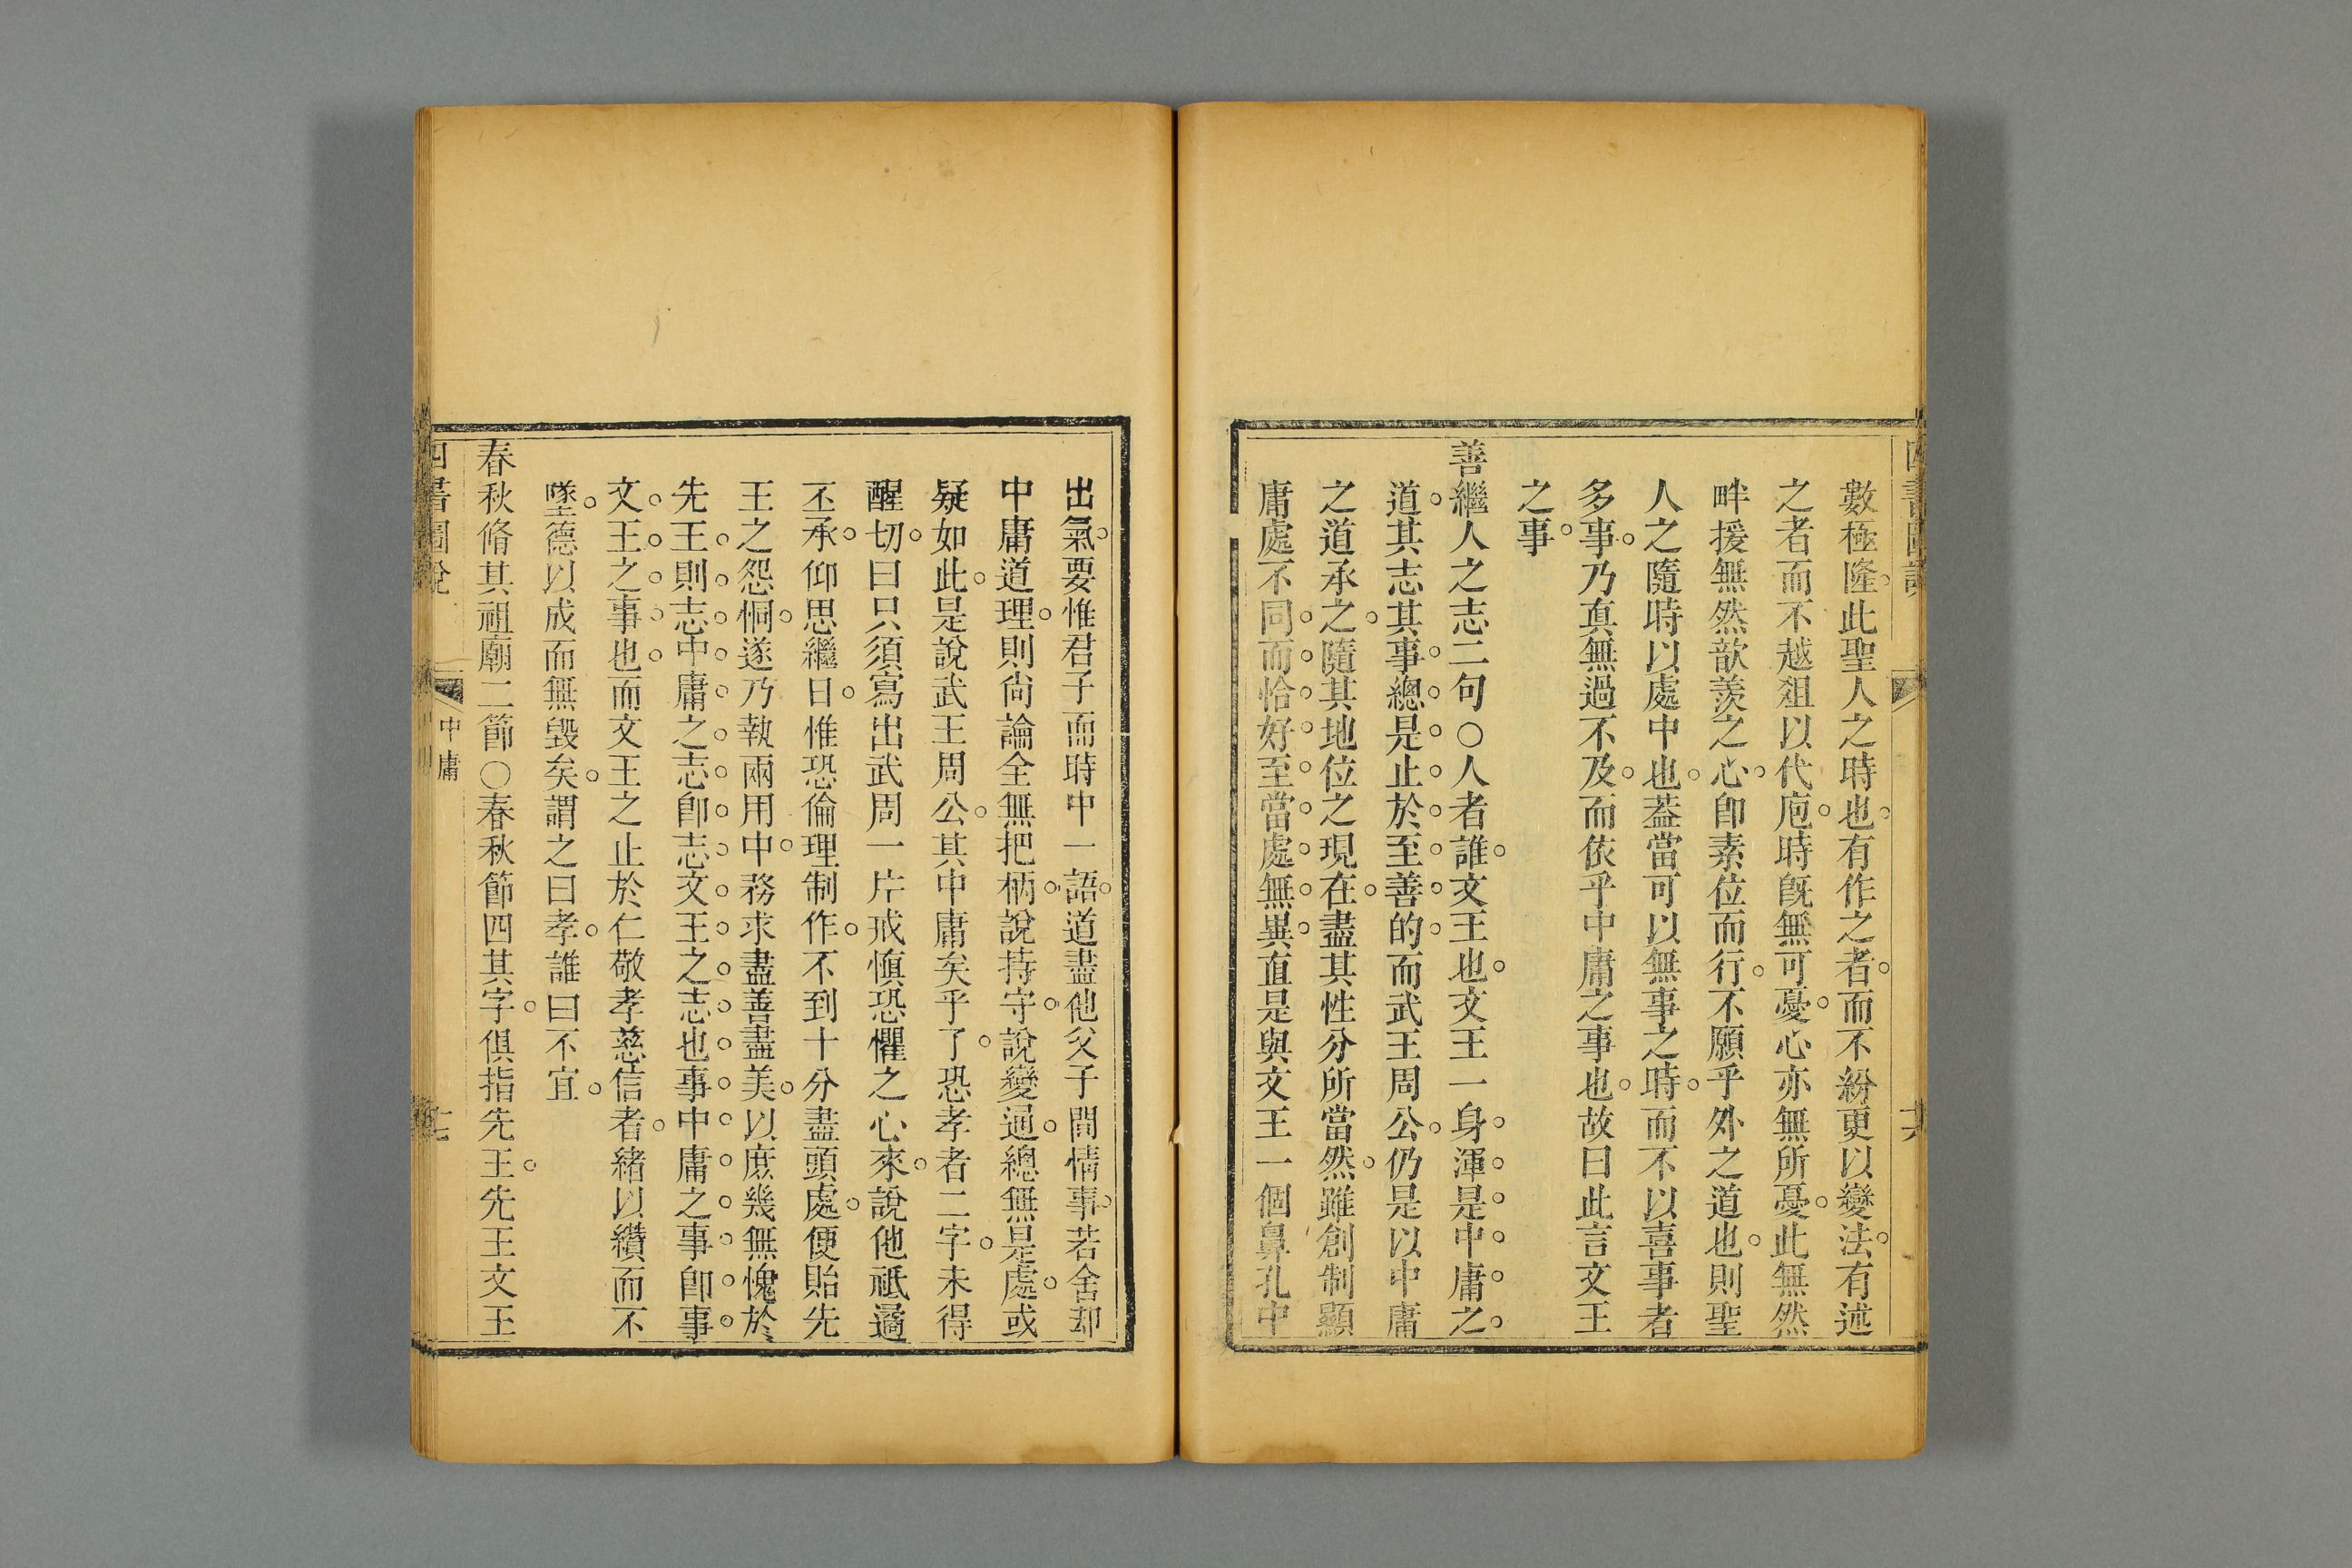 數極隆此聖人之時也有作之者而不紛更以變法有述
之者而不越俎以代庖時旣無可憂心亦無所憂此無然
畔援無然歆羨之心卽素位而行不願乎外之道也則聖
人之隨時以處中也葢當可以無事之時而不以喜事者
多事乃眞無過不及而依乎中庸之事也故曰此言文王
之事
善繼人之志二句○人者誰文王也文王一身渾是中庸之
道其志其事總是止於至善的而武王周公仍是以中庸
之道承之隨其地位之現在盡其性分所當然雖創制顯
庸處不同而恰好至當處無異直是與文王一個鼻孔中
出氣要惟君子而時中一語道盡他父子間情事若舍却
中庸道理則尙論全無把柄說持守說變通總無是處或
疑如此是說武王周公其中庸矣乎了恐孝者二字未得
醒切曰只須寫出武周一片戒愼恐懼之心來說他祇遹
丕承仰思繼日惟恐倫理制作不到十分盡頭處便貽先
王之怨恫遂乃執兩用中務求盡善盡美以庶幾無愧於
先王則志中庸之志卽志文王之志也事中庸之事卽事
文王之事也而文王之止於仁敬孝慈信者緖以纘而不
墜德以成而無毀矣謂之曰孝誰曰不宜
春秋脩其祖廟二節○春秋節四其字俱指先王先王文王
四書圖說
中庸